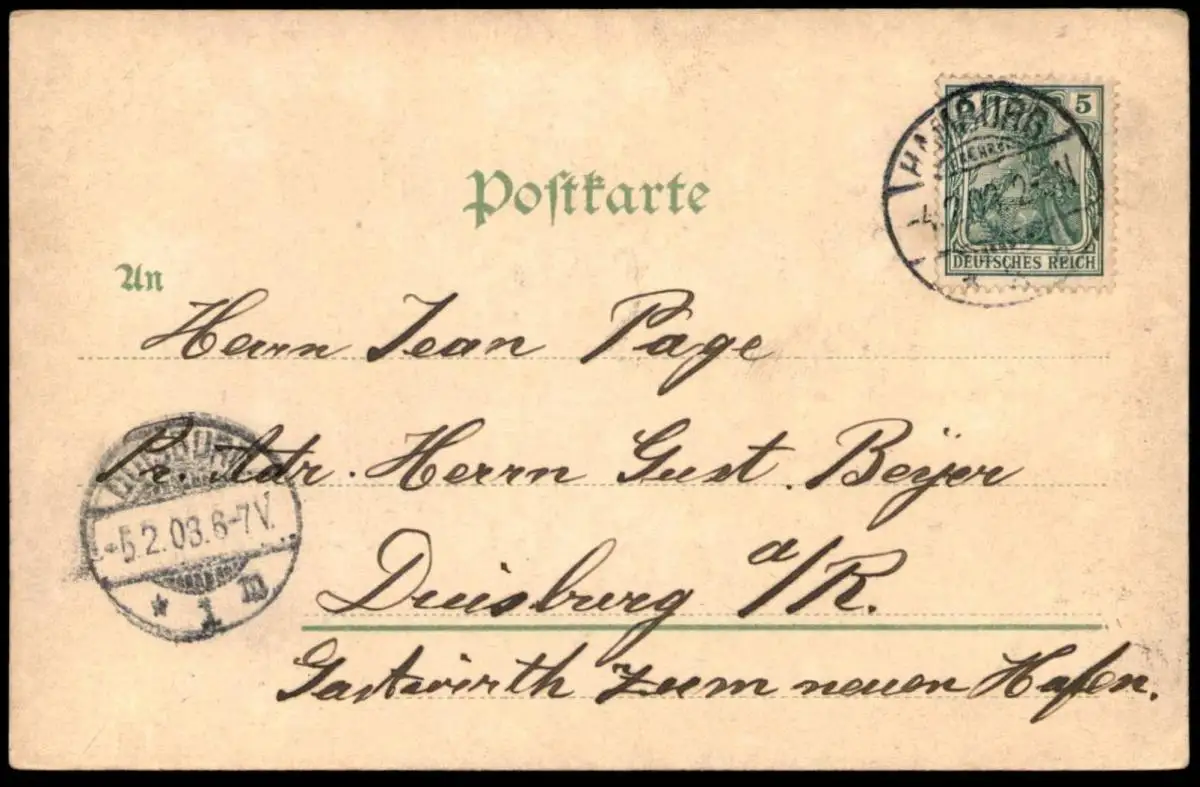 Postkarte
5
HAMBURG
DEUTSCHES REICH
An
Herrn Jean Page
Pr. Adr. Herrn Gust. Beyer
DUISBURG
-5.2.03.6-7V.
* 1 m
Duisburg a/R.
Gastwirth zum neuen Hafen.